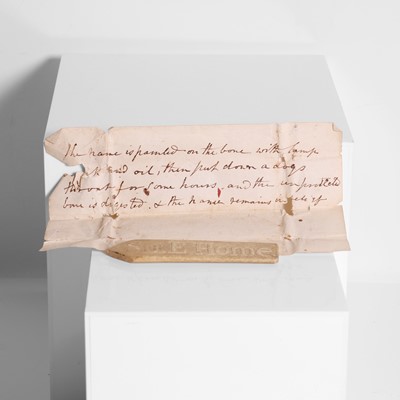 The name is painted on the bone with lamp
and oil, then put down a dogs
throat for some hours, and the unprotected
bone is digested, & the name remains
E Home